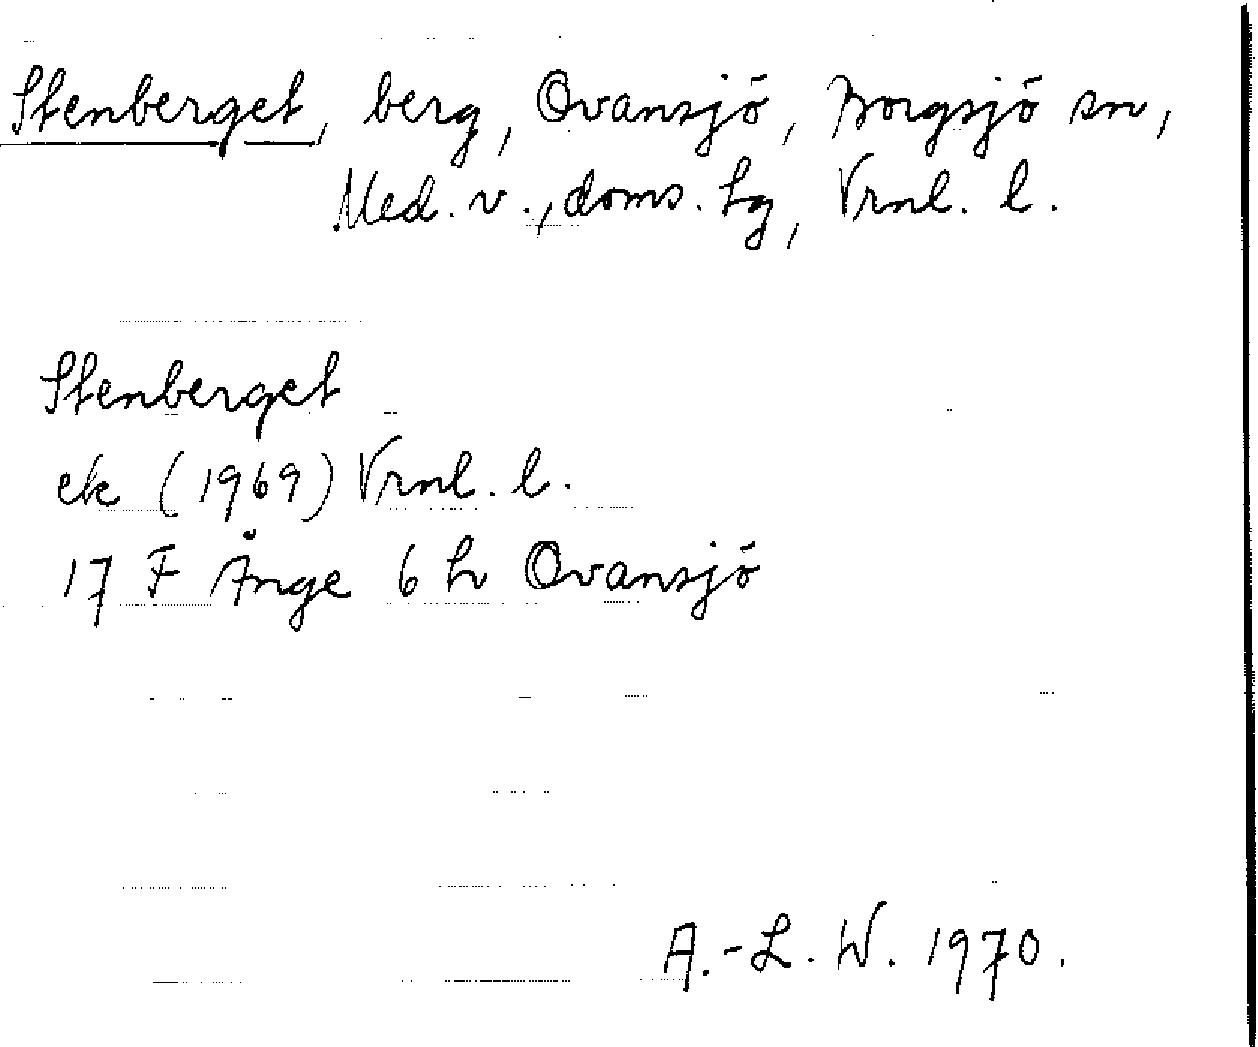 Stenberget, berg, Ovansjö, Borgsjö sn,
Med. v., doms. hg, Vrnl. l.
Stenberget
ek (1969) Vrnl. l.
17 F Ånge 6 h Ovansjö
A.-L. W. 1970.